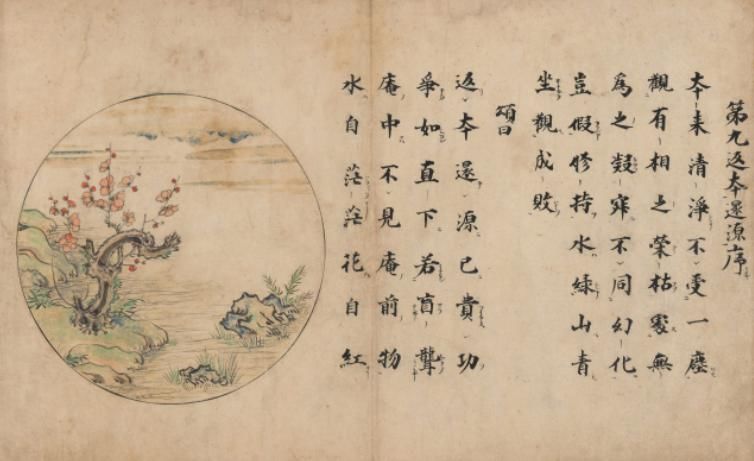 第九返本還源序
本来清淨不受一塵
觀有相之榮枯處無
爲之凝寂不同幻化
豈假修持水緑山青
坐觀成敗
頌曰
返本還源已費功
爭如直下若盲聾
庵中不見庵前物
水自茫茫花自紅